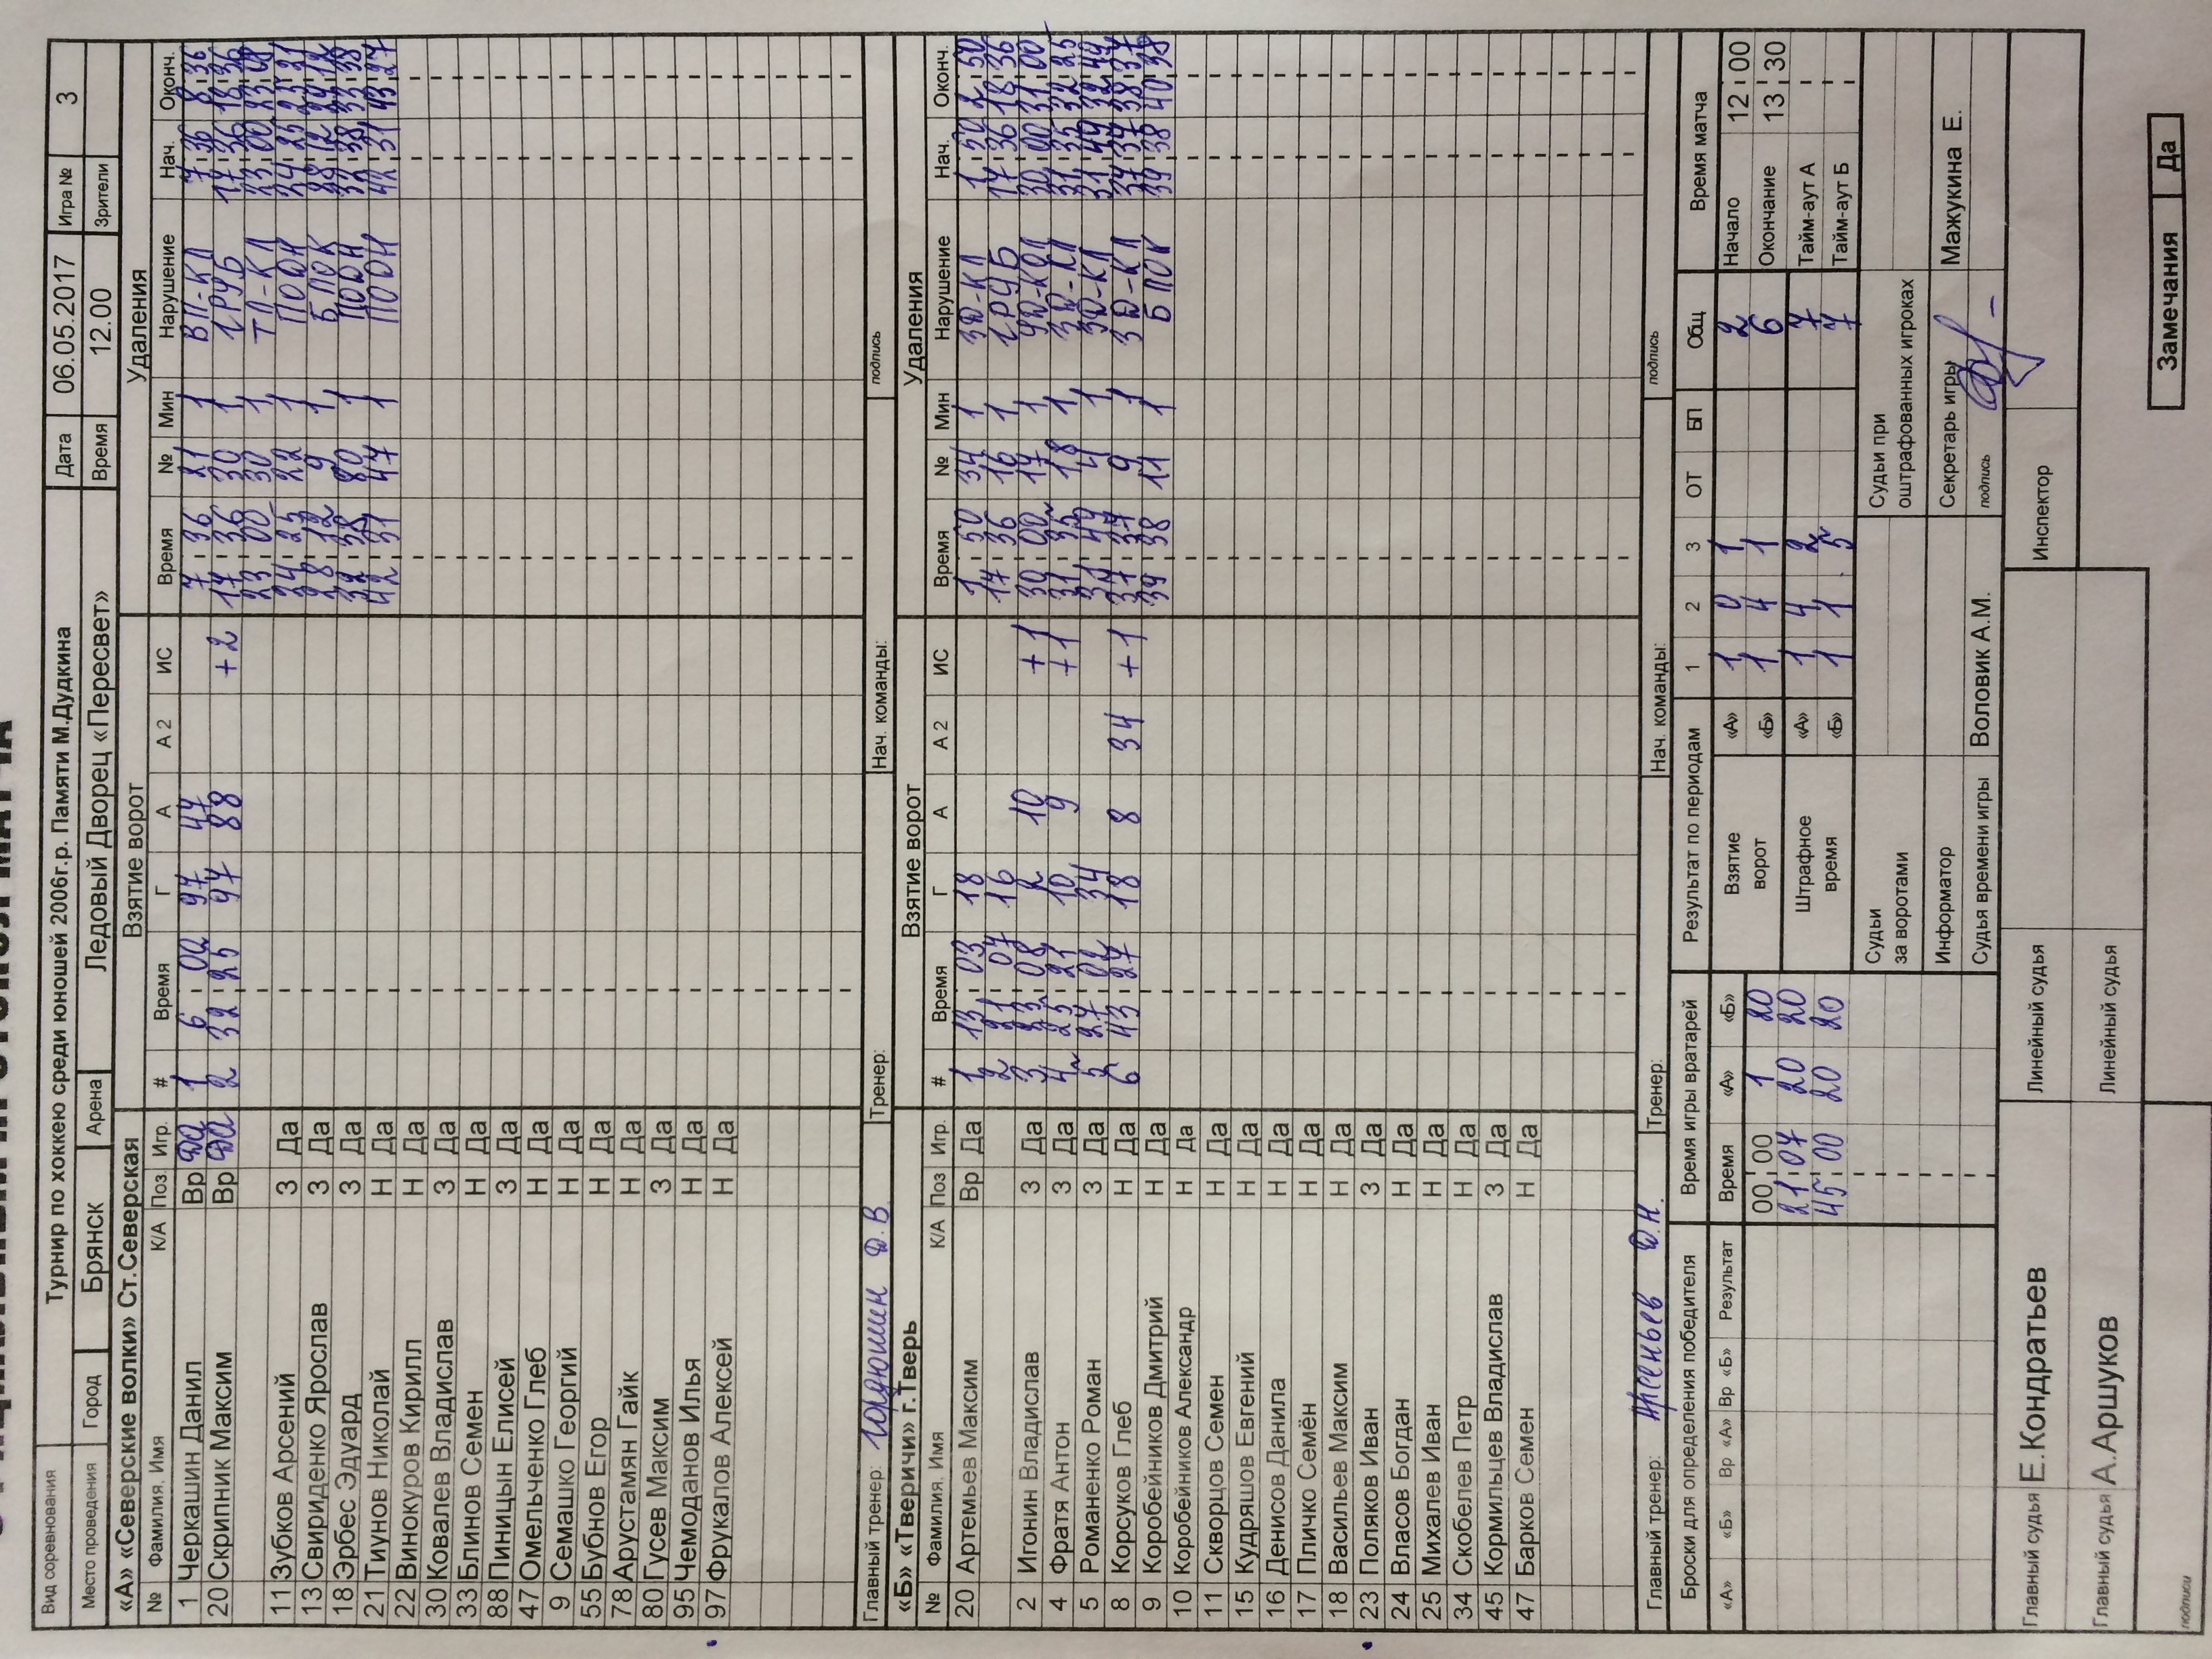 Вид соревнования Турнир по хоккею среди юношей 2006г.р. Памяти М.Дудкина Дата 06.05.2017 Игра № 3
Место проведения Город БРЯНСК Арена Ледовый Дворец «Пересвет» Время 12.00 Зрители
«А» «Северские волки» Ст.Северская Взятие ворот Удаления
№ Фамилия, Имя К/А Поз Игр. # Время Г А А 2 ИС Время № Мин Нарушение Нач. Оконч.
1 Черкашин Данил Вр Да 1 6 00 97 47 7 36 21 1 ВП-КЛ 7 36 8 36
20 Скрипник Максим Вр Да 2 32 25 97 88 +2 17 36 30 1 ГРУБ 17 36 18 36
23 00 30 1 23 00
11 Зубков Арсений З Да 22 1 ПОДН
13 Свириденко Ярослав З Да 28 12 9 1 БЛОК
18 Эрбес Эдуард З Да 80 1 ПОДН
21 Тиунов Николай Н Да 42 31 47 1 ПОДН 42 31
22 Винокуров Кирилл Н Да
30 Ковалев Владислав З Да
33 Блинов Семен Н Да
88 Пиницын Елисей З Да
47 Омельченко Глеб Н Да
9 Семашко Георгий Н Да
55 Бубнов Егор Н Да
78 Арустамян Гайк Н Да
80 Гусев Максим З Да
95 Чемоданов Илья Н Да
97 Фрукалов Алексей Н Да
Главный тренер: Д.В Тренер: Нач. команды: подпись
«Б» «Тверичи» г.Тверь Взятие ворот Удаления
№ Фамилия, Имя К/А Поз Игр. # Время Г А А 2 ИС Время № Мин Нарушение Нач. Оконч.
20 Артемьев Максим Вр Да 1 13 03 18 1 50 34 1 ЗД-КЛ 1 50 2 50
2 21 07 16 17 36 16 1 ГРУБ 17 36 18 36
2 Игонин Владислав З Да 3 23 08 2 10 +1 30 00 17 1 30 00 31 00
4 Фратя Антон З Да 4 25 21 10 9 +1 18 1 ЗД-КЛ
5 Романенко Роман З Да 5 27 02 34 31 49 4 1 ЗД-КЛ 31 49 32 49
8 Корсуков Глеб Н Да 6 43 27 18 8 34 +1 37 37 9 1 ЗД-КЛ 37 37 38 37
9 Коробейников Дмитрий Н Да 39 38 11 1 БЛОК 39 38 40 38
10 Коробейников Александр Н Да
11 Скворцов Семен Н Да
15 Кудряшов Евгений Н Да
16 Денисов Данила Н Да
17 Пличко Семён Н Да
18 Васильев Максим Н Да
23 Поляков Иван З Да
24 Власов Богдан Н Да
25 Михалев Иван Н Да
34 Скобелев Петр Н Да
45 Кормильцев Владислав З Да
47 Барков Семен Н Да
Главный тренер: Арсеньев Д.Н. Тренер: Нач. команды: подпись
Броски для определения победителя Время игры вратарей Результат по периодам 1 2 3 ОТ БП Общ Время матча
«А» «Б» Вр «А» Вр «Б» Результат Время «А» «Б» Взятие ворот «А» 1 0 1 2 Начало 12 00
00 00 1 20 «Б» 1 4 1 6 Окончание 13 30
21 07 20 20 Штрафное время «А» 1 4 2 7 Тайм-аут А
45 00 20 20 «Б» 1 1 5 7 Тайм-аут Б
Судьи за воротами Судьи при оштрафованных игроках
Информатор Секретарь игры Мажукина Е.
Судья времени игры Воловик А.М. подпись
Главный судья Е.Кондратьев Линейный судья Инспектор
Главный судья А.Аршуков Линейный судья
подписи Замечания Да